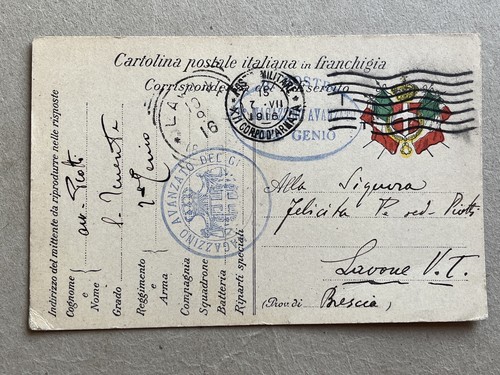 Cartolina postale italiana in franchigia
Corrispondenza del R. esercito
POSTA MILITARE
XVI CORPO D'ARMATA
7. VII
1916
AVANZATO
GENIO
LAVONE
16
MAGAZZINO AVANZATO DEL GENIO
Alla Signora
Felicita ved. Piotti
Lavone V. T.
(Prov. di Brescia)
Indirizzo del mittente da riprodurre nelle risposte
Cognome e Nome avv. Piotti
Grado S. Tenente
Reggimento e Arma 2° Genio
Compagnia
Squadrone
Batteria
Riparti speciali